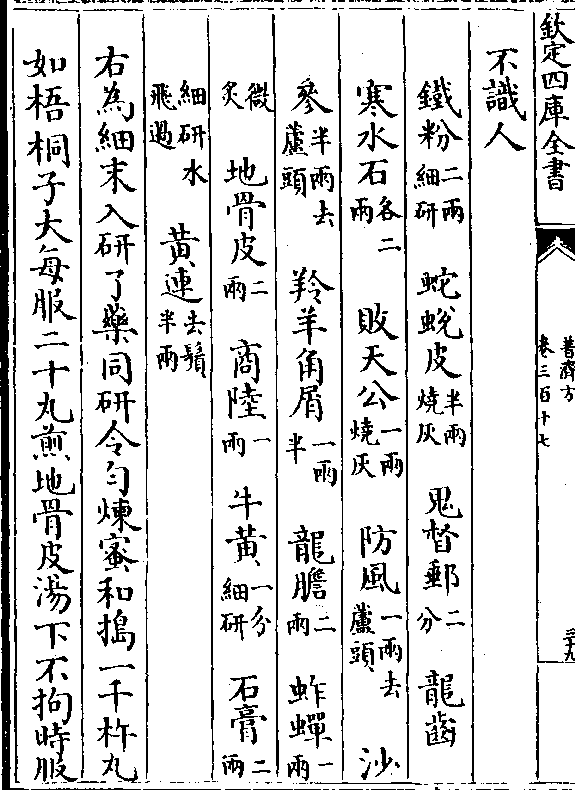 欽定四庫全書
普濟方
卷三百十七
不識人
鐵粉二兩細研 蛇蛻皮半兩燒灰 鬼督郵二分 龍齒
寒水石各二兩 敗天公一兩燒灰 防風一兩去蘆頭 沙
參半兩去蘆頭 羚羊角屑一兩半 龍膽二兩 蚱蟬一兩
微炙 地骨皮二兩 商陸一兩 牛黃一分細研 石膏二兩
細研水飛過 黃連去鬚半兩
右為細末入研了藥同研令勻煉蜜和搗一千杵丸
如梧桐子大每服二十丸煎地骨皮湯下不拘時服